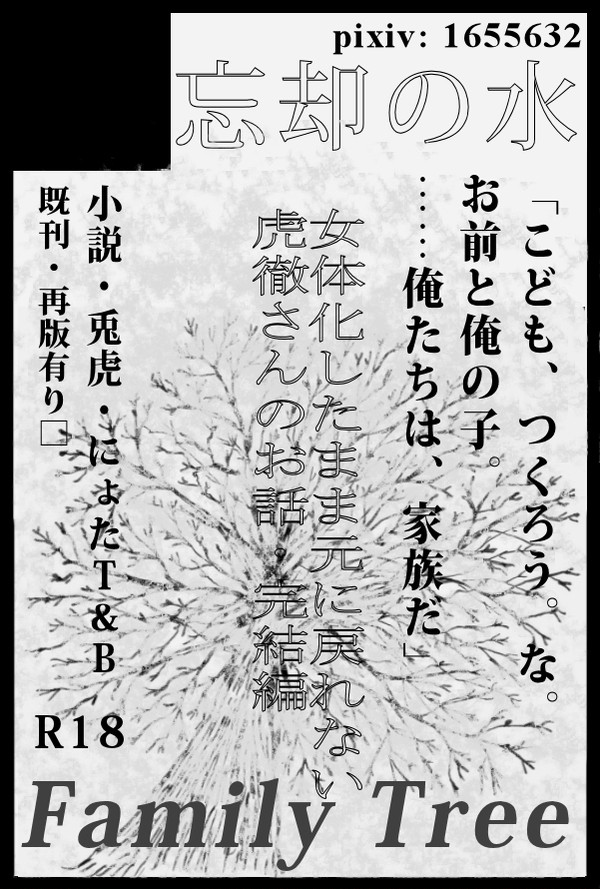 pixiv: 1655632
忘却の水
「こども、つくろう。な。
お前と俺の子。
……俺たちは、家族だ」
女体化したまま元に戻れない
虎徹さんのお話・完結編
小説・兎虎・にょたT&B
既刊・再版有り□
R18
Family Tree